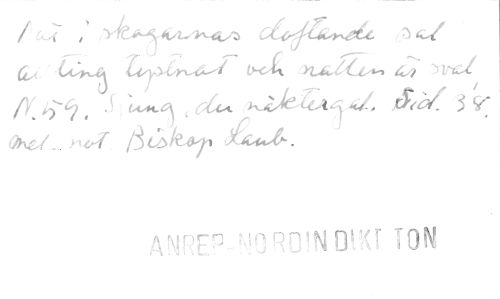 När i skogarnas doftande sal
allting tystnat och natten är sval,
N. 59. Sjung, du näktergal. Sid. 38.
med not. Biskop Laub.
ANREP-NORDIN DIKT TON